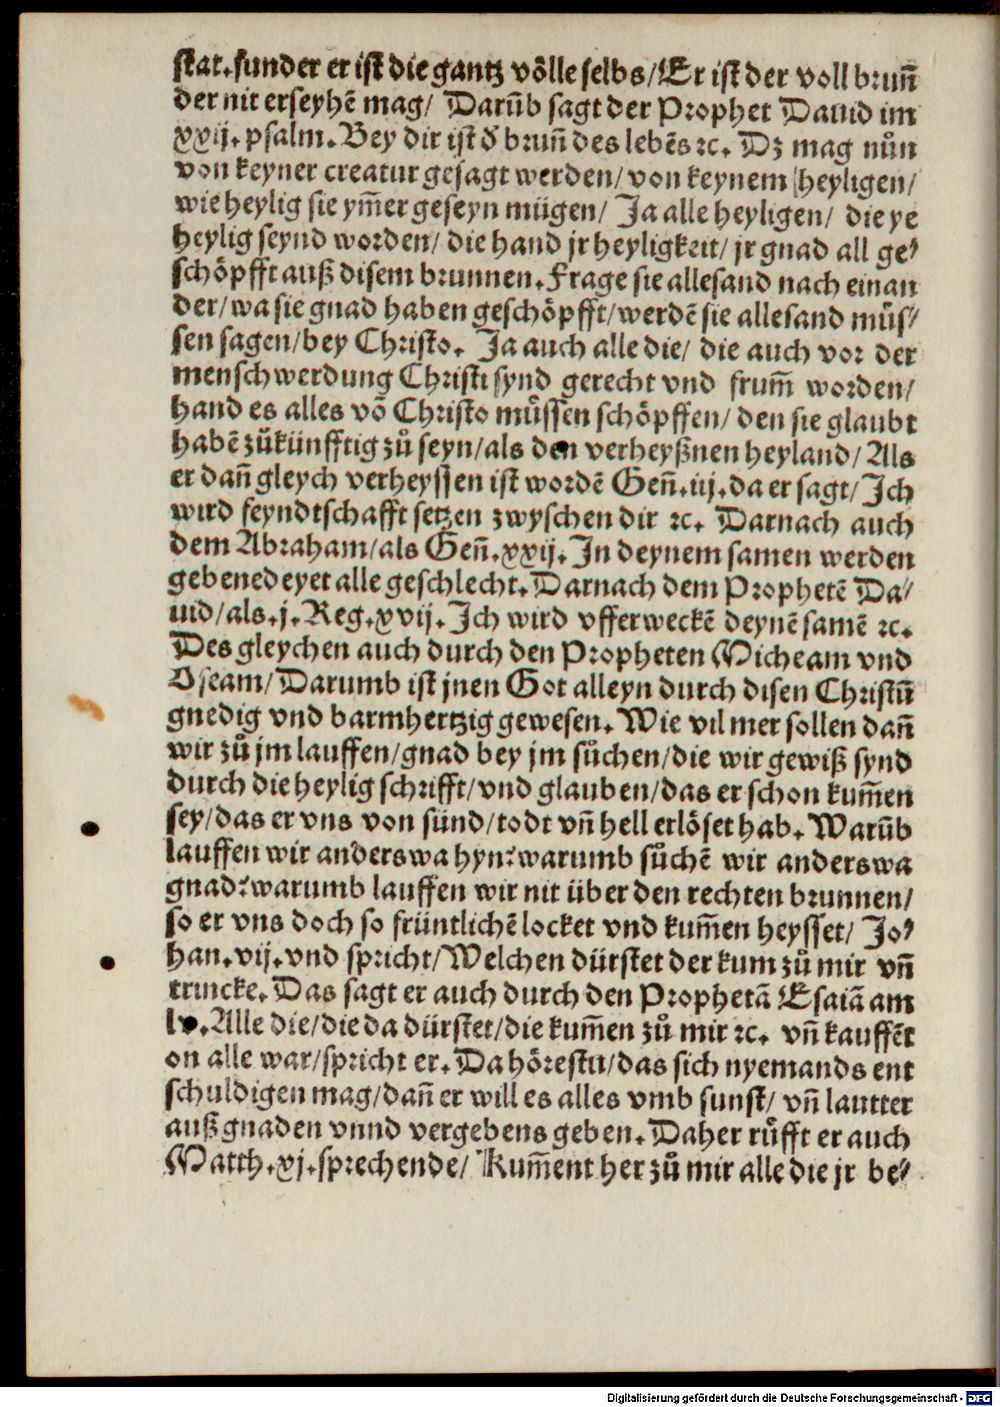 stat. sunder er ist die gantz völle selbs/ Er ist der voll brun̄
der nit erseyhē mag/ Darūb sagt der Prophet Dauid im
xxij. psalm. Bey dir ist d̛ brun̄ des lebēs ꝛc. Dz mag nůn
von keyner creatur gesagt werden/ von keynem heyligen/
wie heylig sie ym̄er geseyn mügen/ Ja alle heyligen/ die ye
heylig seynd worden/ die hand jr heyligkeit/ jr gnad all ge⸗
schöpfft auß disem brunnen. Frage sie allesand nach einan
der/ wa sie gnad haben geschöpfft/ werdē sie allesand müs⸗
sen sagen/ bey Christo. Ja auch alle die/ die auch vor der
menschwerdung Christi synd gerecht vnd frum̄ worden/
hand es alles vō Christo müssen schöpffen/ den sie glaubt
habē zůkünfftig zů seyn/ als den verheyßnen heyland/ Als
er dan̄ gleych verheyssen ist wordē Gen̄. iij. da er sagt/ Ich
wird feyndtschafft setzen zwyschen dir ꝛc. Darnach auch
dem Abraham/ als Gen̄. xxij. In deynem samen werden
gebenedeyet alle geschlecht. Darnach dem Prophetē Da⸗
uid/ als. j. Reg. xvij. Ich wird vfferweckē deynē samē ꝛc.
Des gleychen auch durch den Propheten Micheam vnd
Oseam/ Darumb ist jnen Got alleyn durch disen Christū
gnedig vnd barmhertzig gewesen. Wie vil mer sollen dan̄
wir zů jm lauffen/ gnad bey jm sůchen/ die wir gewiß synd
durch die heylig schrifft/ vnd glauben/ das er schon kum̄en
sey/ das er vns von sünd/ todt vn̄ hell erlöset hab. Warūb
lauffen wir anderswa hyn? warumb sůchē wir anderswa
gnad? warumb lauffen wir nit über den rechten brunnen/
so er vns doch so früntlichē locket vnd kum̄en heysset/ Jo⸗
han. vij. vnd spricht/ Welchen dürstet der kum zů mir vn̄
trincke. Das sagt er auch durch den Prophetā Esaiā am
lv. Alle die/ die da dürstet/ die kum̄en zů mir ꝛc. vn̄ kauffēt
on alle war/ spricht er. Da hörestu/ das sich nyemands ent
schuldigen mag/ dan̄ er will es alles vmb sunst/ vn̄ lautter
auß gnaden vnnd vergebens geben. Daher růfft er auch
Matth. xj. sprechende/ Kum̄ent her zů mir alle die jr be⸗
Digitalisierung gefördert durch die Deutsche Forschungsgemeinschaft - DFG